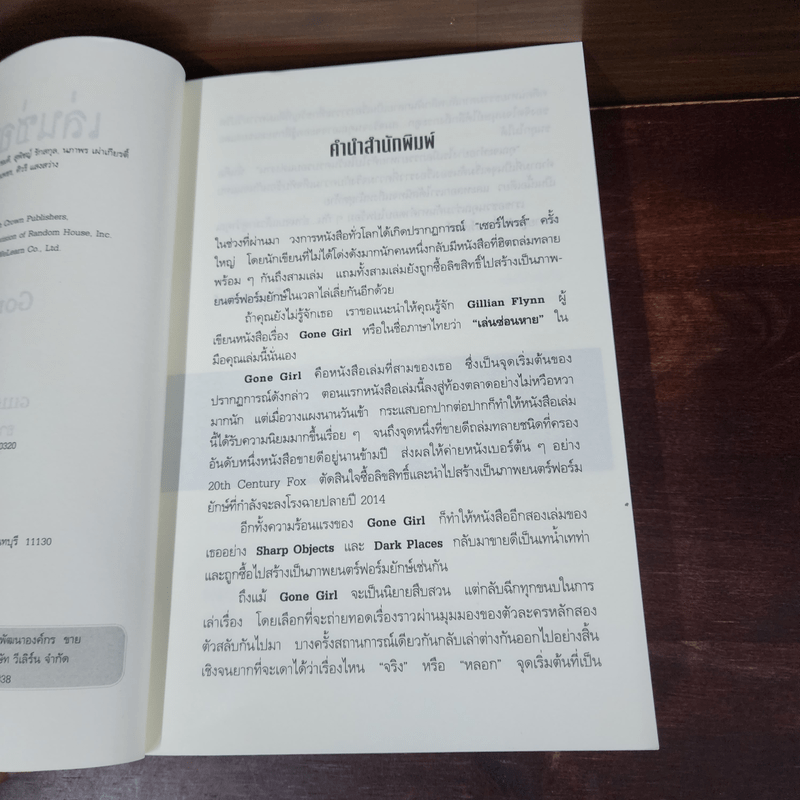 เล่นซ่อ
สุพิชญ์ รักสกุล, นภาพร เผ่าเกียรติ์
ศิวรี แสงสว่าง
Crown Publishers,
ision of Random House, Inc.
WeLearn Co., Ltd.
0320
ทบุรี 11130
พัฒนาองค์กร ขาย
ษัท วีเลิร์น จำกัด
938
คำนำสำนักพิมพ์
ในช่วงที่ผ่านมา วงการหนังสือทั่วโลกได้เกิดปรากฏการณ์ “เซอร์ไพรส์” ครั้ง
ใหญ่ โดยนักเขียนที่ไม่ได้โด่งดังมากนักคนหนึ่งกลับมีหนังสือที่ฮิตถล่มทลาย
พร้อม ๆ กันถึงสามเล่ม แถมทั้งสามเล่มยังถูกซื้อลิขสิทธิ์ไปสร้างเป็นภาพ-
ยนตร์ฟอร์มยักษ์ในเวลาไล่เลี่ยกันอีกด้วย
ถ้าคุณยังไม่รู้จักเธอ เราขอแนะนำให้คุณรู้จัก Gillian Flynn ผู้
เขียนหนังสือเรื่อง Gone Girl หรือในชื่อภาษาไทยว่า “เล่นซ่อนหาย” ใน
มือคุณเล่มนี้นั่นเอง
Gone Girl คือหนังสือเล่มที่สามของเธอ ซึ่งเป็นจุดเริ่มต้นของ
ปรากฏการณ์ดังกล่าว ตอนแรกหนังสือเล่มนี้ลงสู่ท้องตลาดอย่างไม่หวือหวา
มากนัก แต่เมื่อวางแผงนานวันเข้า กระแสบอกปากต่อปากก็ทำให้หนังสือเล่ม
นี้ได้รับความนิยมมากขึ้นเรื่อย ๆ จนถึงจุดหนึ่งที่ขายดีถล่มทลายชนิดที่ครอง
อันดับหนึ่งหนังสือขายดีอยู่นานข้ามปี ส่งผลให้ค่ายหนังเบอร์ต้น ๆ อย่าง
20th Century Fox ตัดสินใจซื้อลิขสิทธิ์และนำไปสร้างเป็นภาพยนตร์ฟอร์ม
ยักษ์ที่กำลังจะลงโรงฉายปลายปี 2014
อีกทั้งความร้อนแรงของ Gone Girl ก็ทำให้หนังสืออีกสองเล่มของ
เธออย่าง Sharp Objects และ Dark Places กลับมาขายดีเป็นเทน้ำเทท่า
และถูกซื้อไปสร้างเป็นภาพยนตร์ฟอร์มยักษ์เช่นกัน
ถึงแม้ Gone Girl จะเป็นนิยายสืบสวน แต่กลับฉีกทุกขนบในการ
เล่าเรื่อง โดยเลือกที่จะถ่ายทอดเรื่องราวผ่านมุมมองของตัวละครหลักสอง
ตัวสลับกันไปมา บางครั้งสถานการณ์เดียวกันกลับเล่าต่างกันออกไปอย่างสิ้น
เชิงจนยากที่จะเดาได้ว่าเรื่องไหน “จริง” หรือ “หลอก” จุดเริ่มต้นที่เป็น